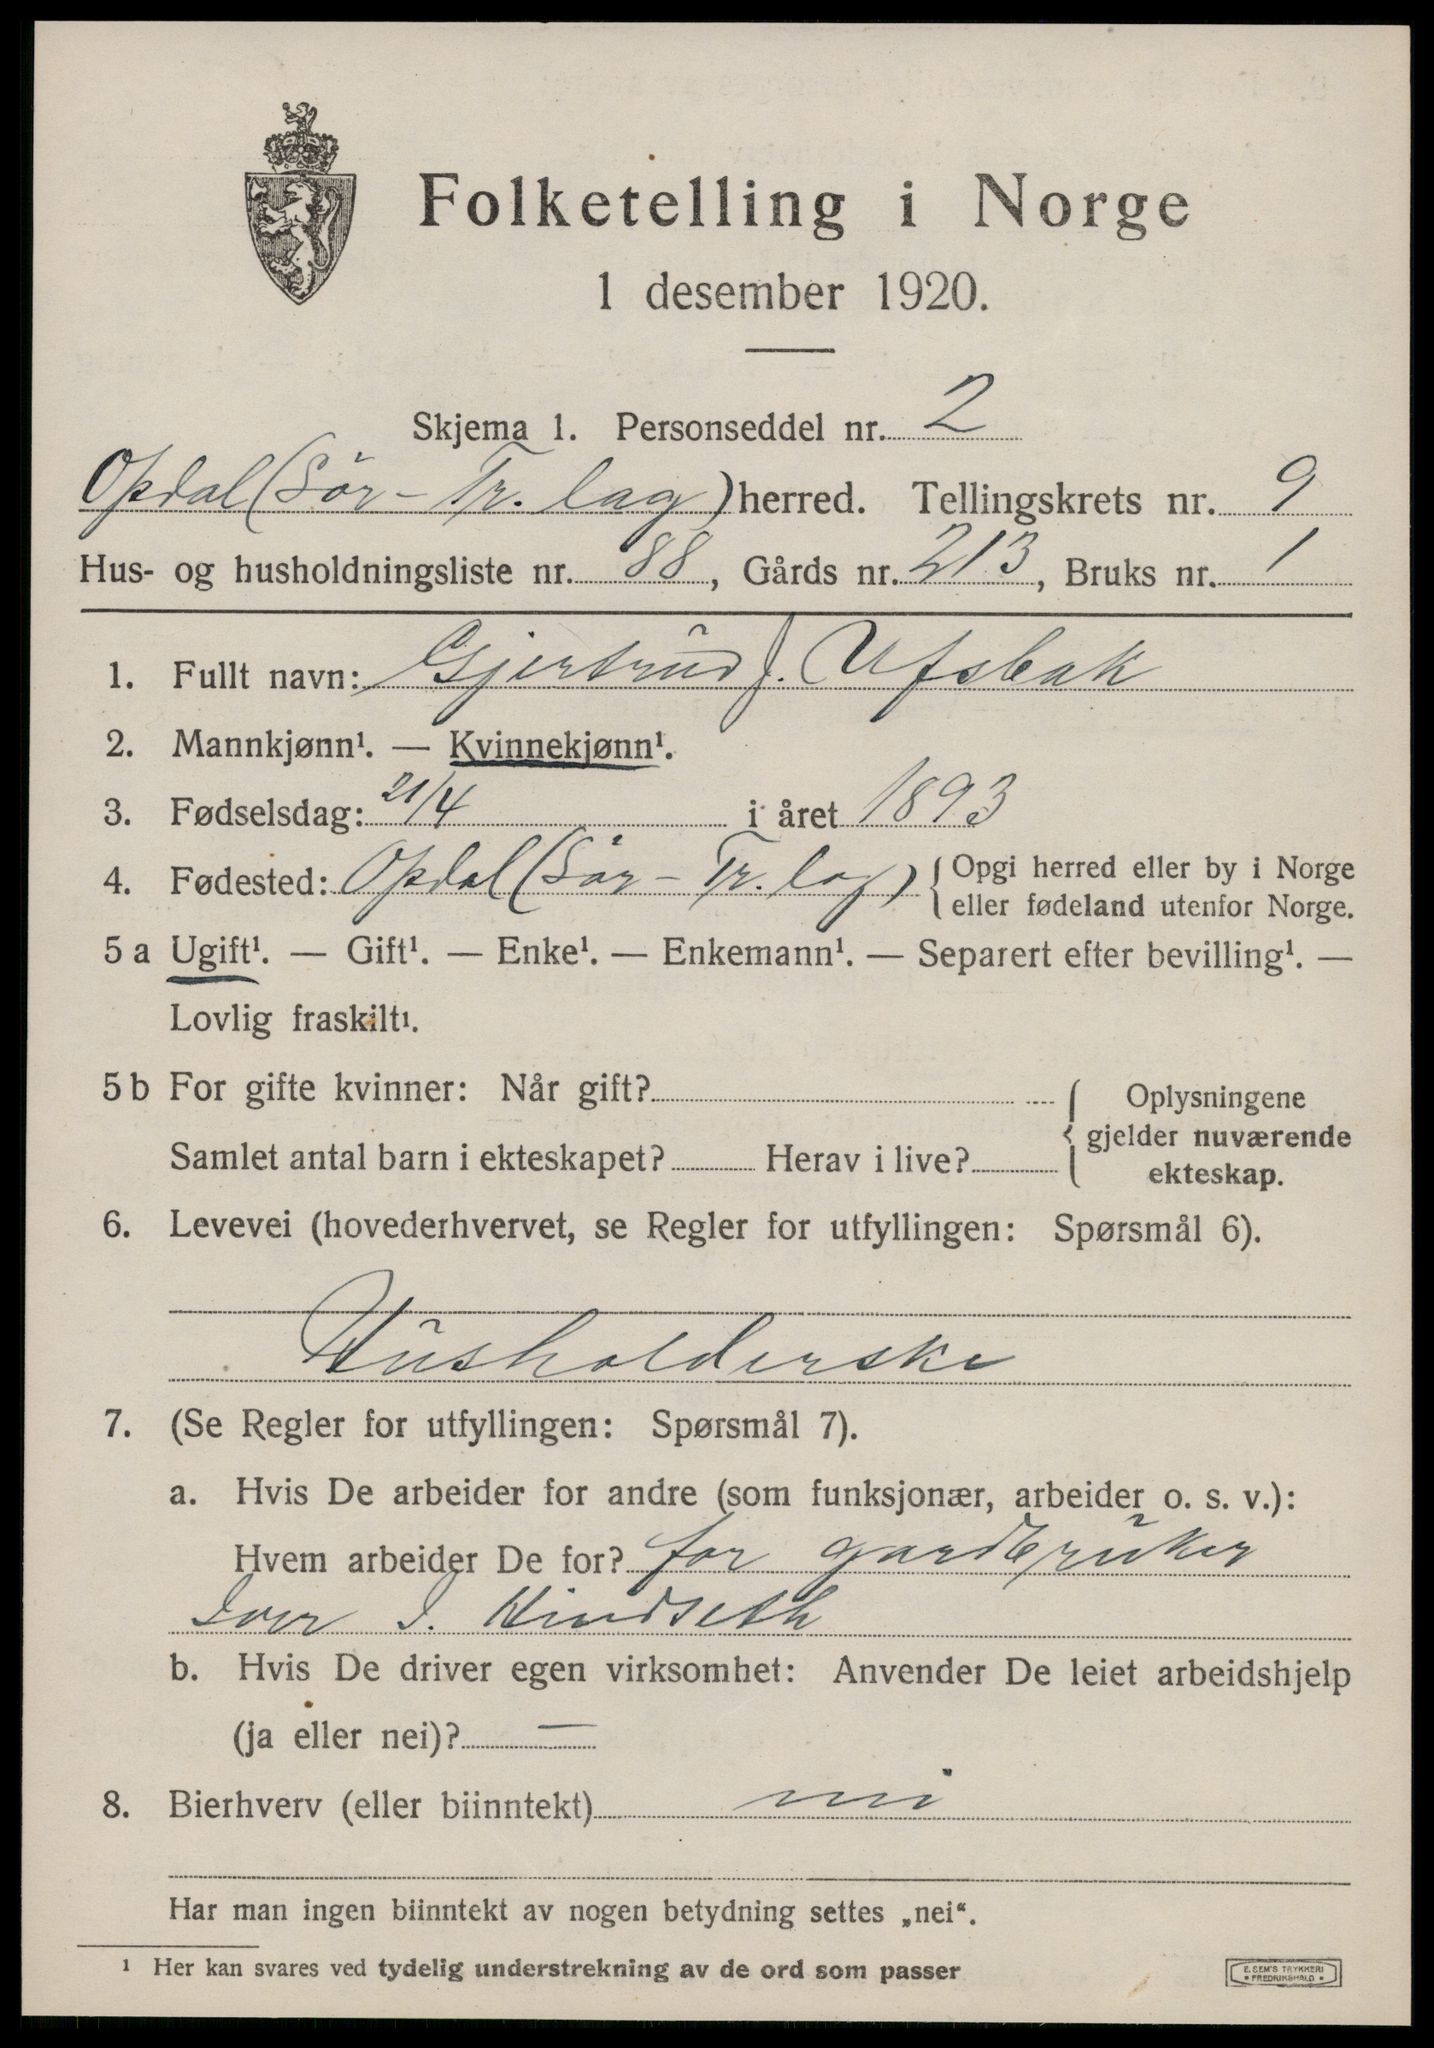 Folketelling i Norge
1 desember 1920.
Skjema 1. Personseddel nr. 2
Opdal (Sör-Tr.lag) herred. Tellingskrets nr. 9
Hus- og husholdningsliste nr. 88, Gårds nr. 213, Bruks nr. 1
1. Fullt navn: Gjertrud J. Ufsbak
2. Mannkjønn¹. — Kvinnekjønn¹.
3. Fødselsdag: 21/4 i året 1893
4. Fødested: Opdal (Sör-Tr.lag) { Opgi herred eller by i Norge
eller fødeland utenfor Norge.
5 a Ugift¹. — Gift¹. — Enke¹. — Enkemann¹. — Separert efter bevilling¹. —
Lovlig fraskilt¹.
5 b For gifte kvinner: Når gift? { Oplysningene
gjelder nuværende
Samlet antal barn i ekteskapet? Herav i live?
ekteskap.
6. Levevei (hovederhvervet, se Regler for utfyllingen: Spørsmål 6).
Husholderske
7. (Se Regler for utfyllingen: Spørsmål 7).
a. Hvis De arbeider for andre (som funksjonær, arbeider o. s. v.):
Hvem arbeider De for? for gardbruker
Iver I. Vindseth
b. Hvis De driver egen virksomhet: Anvender De leiet arbeidshjelp
(ja eller nei)? —
8. Bierhverv (eller biinntekt) nei
Har man ingen biinntekt av nogen betydning settes „nei“.
¹ Her kan svares ved tydelig understrekning av de ord som passer
E. SEM'S TRYKKERI
• FREDRIKSHALD •